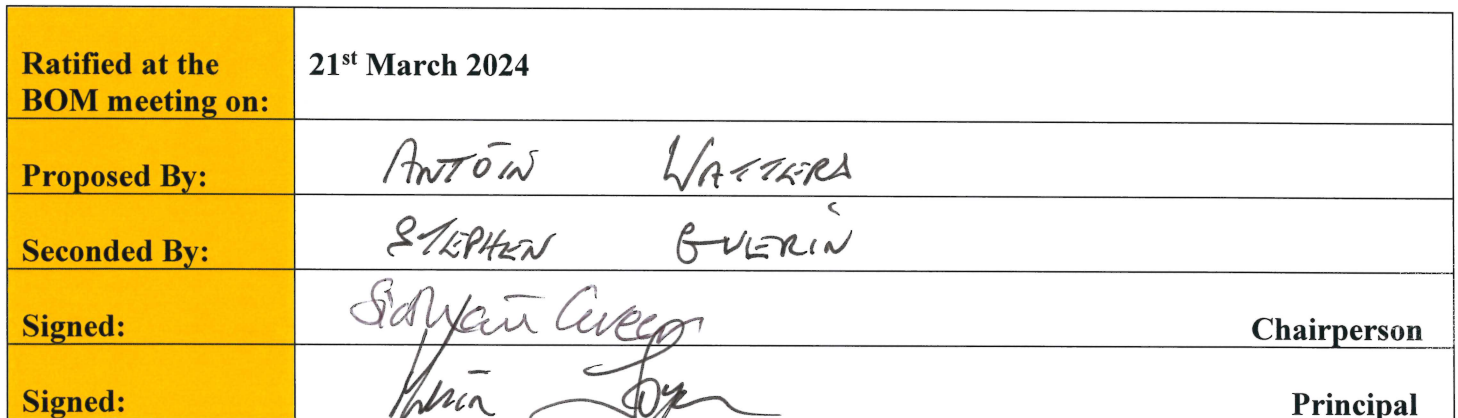 Ratified at the
BOM meeting on:
21st March 2024
Proposed By: ANTÓIN WATTERS
Seconded By: STEPHEN GUERIN
Signed: Chairperson
Signed: Principal